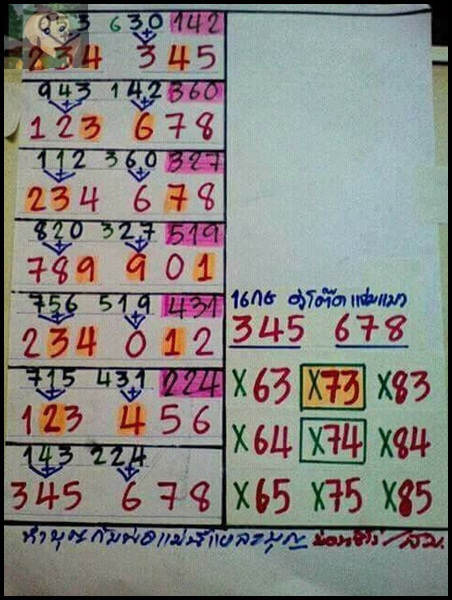 053 630 142
234 345
943 142 360
123 678
112 360 327
234 678
820 327 519
789 901
756 519 431
234 012
715 431 224
123 456
143 224
345 678
345 678
X63 X73 X83
X64 X74 X84
X65 X75 X85
ทำบุญกับพ่อแม่